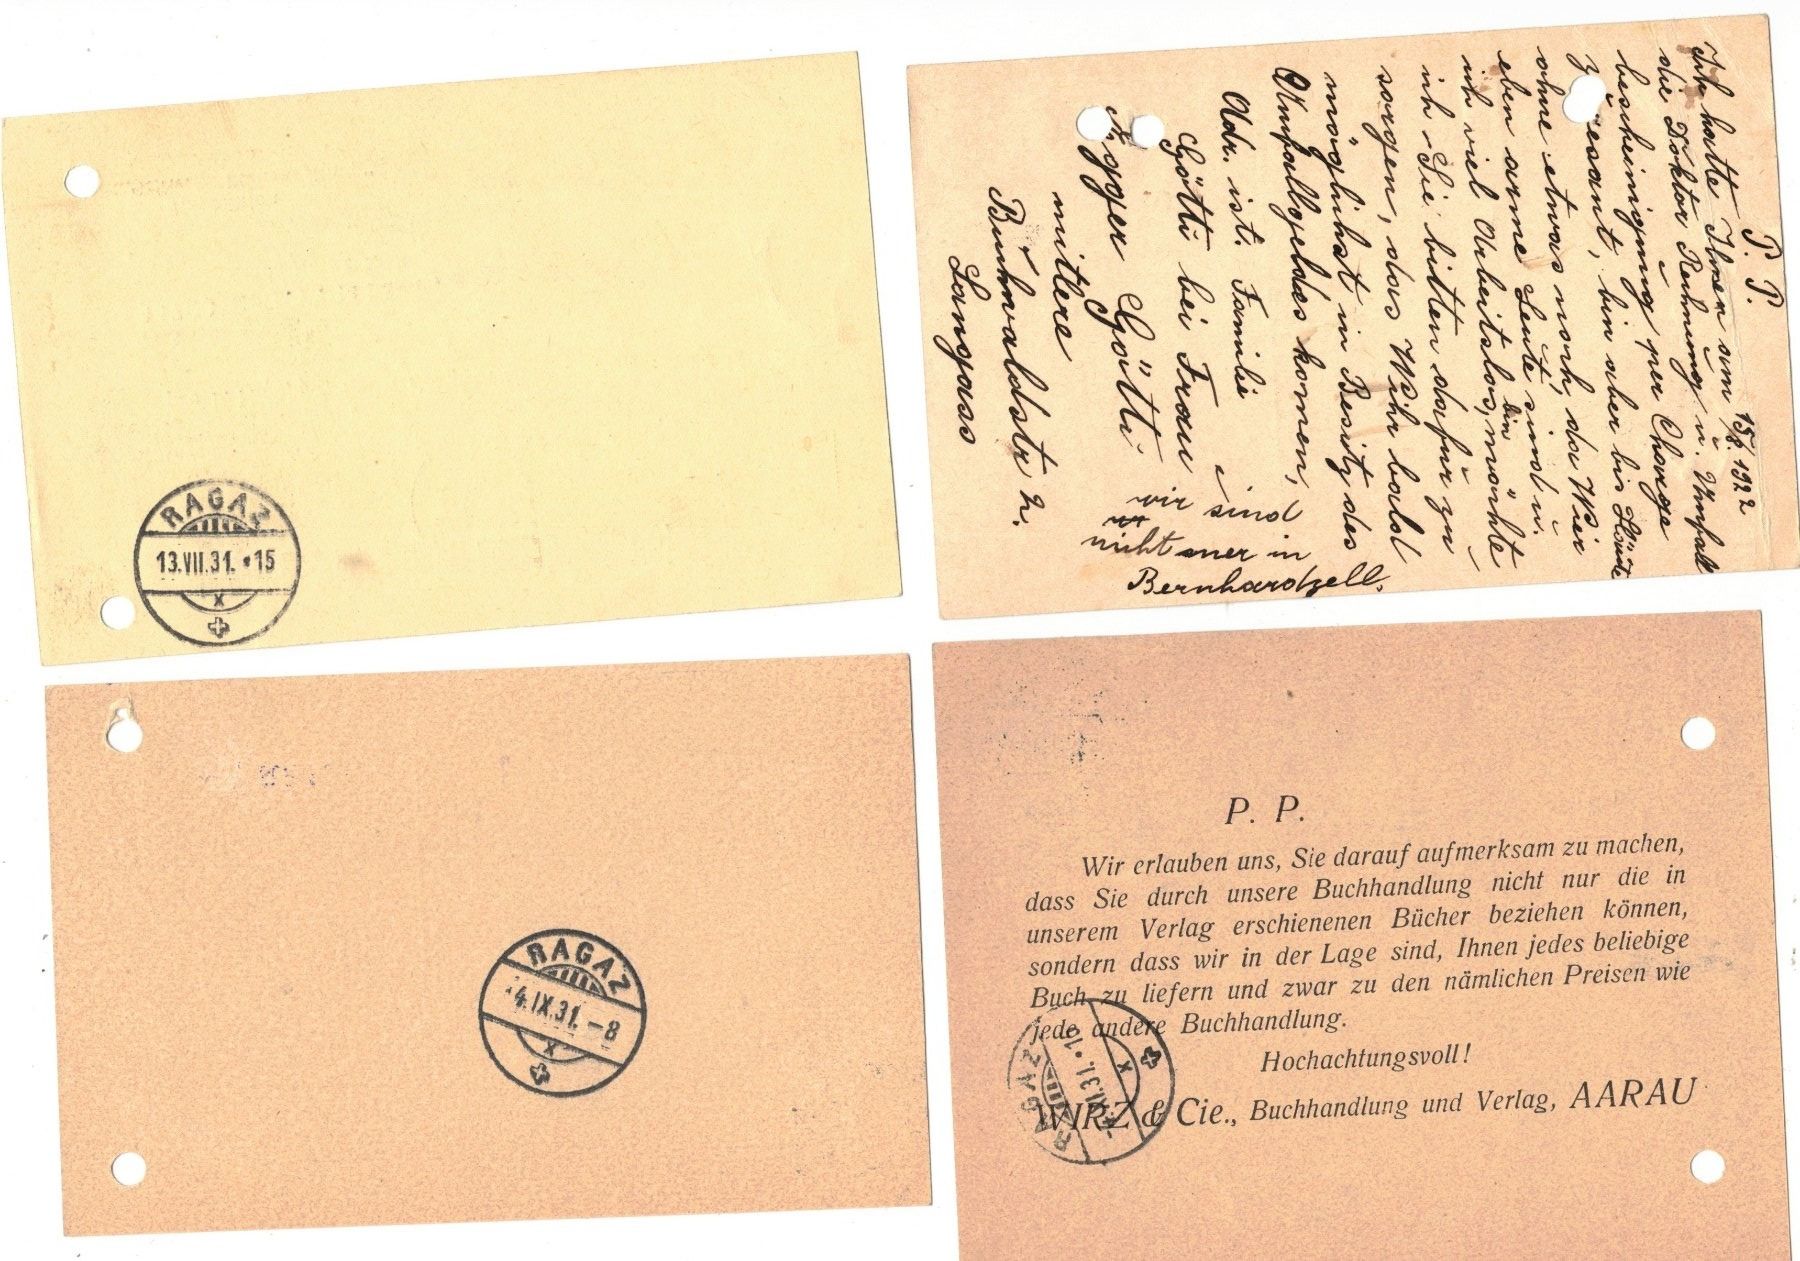 RAGAZ
13.VII.31.•15
X
P. P.
15/8. 1922
Ich hatte Ihnen am
die Doktor Rechnung u. Unfall
bescheinigung per Charge
gesant, bin aber bis Heute
ohne etwas noch, da Wier
eben arme Leute sind u.
ich viel Arbeitslos bin, möchte
ich Sie bitten dafür zu
sorgen, das Wihr bald
möglichst in Besitz des
Unfallgeldes komen,
Adr. ist. Familie
Götti bei Frau
Egger Götti
mitlere
Buchwaldstr 2.
Langass
wir sind
nicht mer in
Bernhardzell.
RAGAZ
4.IX.31.–8
X
P. P.
Wir erlauben uns, Sie darauf aufmerksam zu machen,
dass Sie durch unsere Buchhandlung nicht nur die in
unserem Verlag erschienenen Bücher beziehen können,
sondern dass wir in der Lage sind, Ihnen jedes beliebige
Buch zu liefern und zwar zu den nämlichen Preisen wie
jede andere Buchhandlung.
Hochachtungsvoll!
WIRZ & Cie., Buchhandlung und Verlag, AARAU
RAGAZ
X